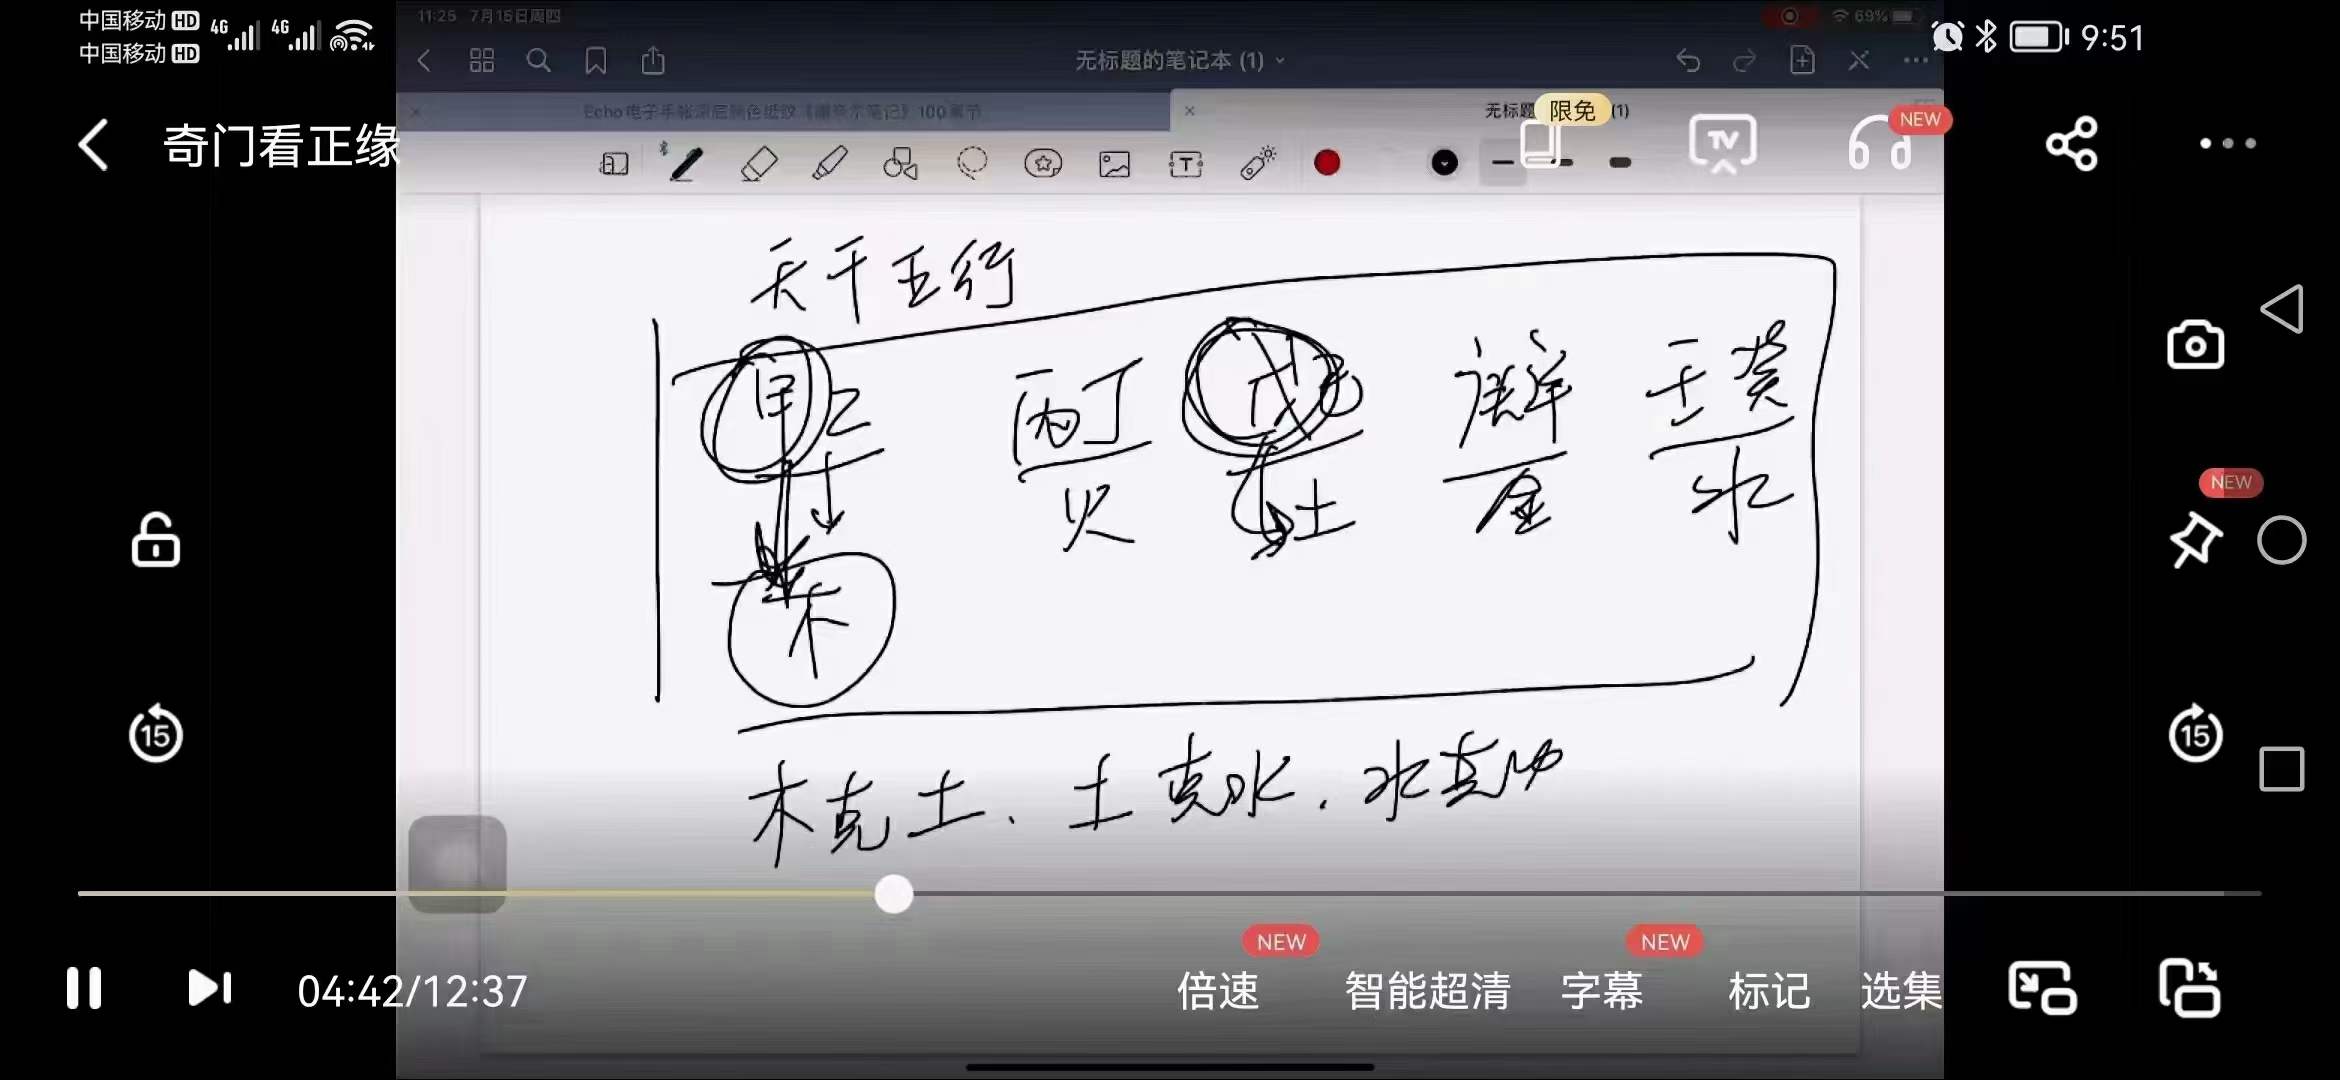 中国移动 HD 4G 4G
中国移动 HD
11:25 7月15日周四
69%
9:51
无标题的笔记本 (1)
奇门看正缘
Echo电子手帐
100章节
无标题
限免
(1)
TV
NEW
天干五行
甲乙 丙丁 戊己 庚辛 壬癸
木 火 土 金 水
NEW
15
15
木克土、土克水.水克火
NEW
NEW
04:42/12:37
倍速
智能超清
字幕
标记
选集